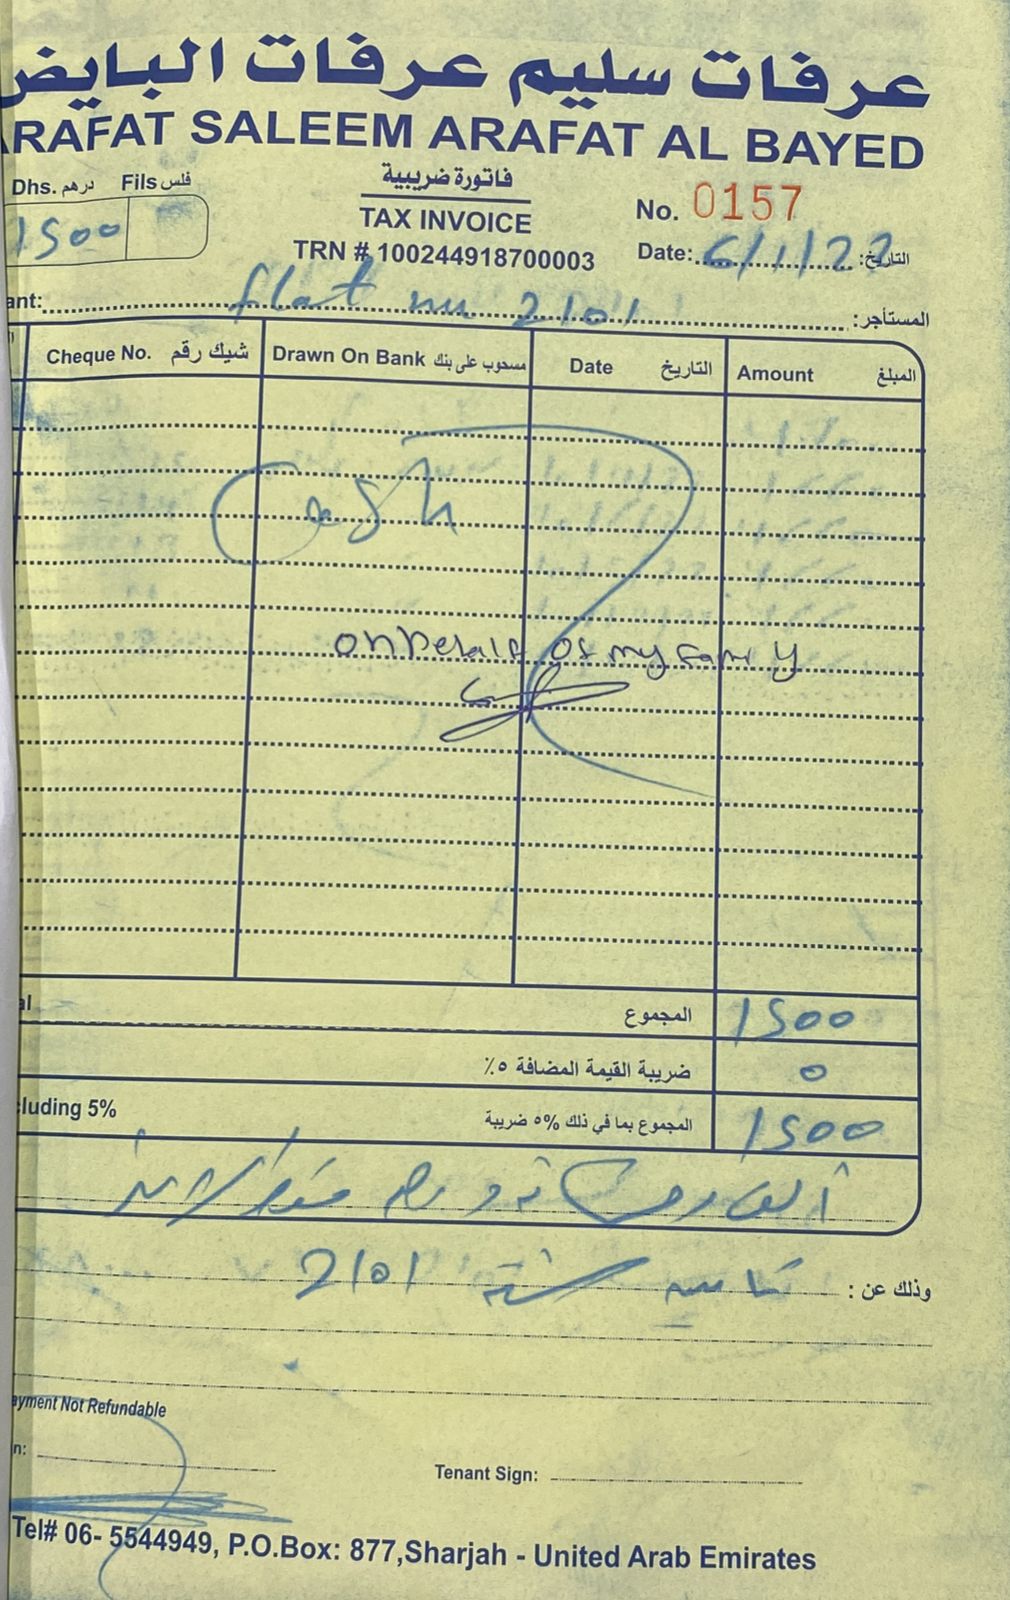 عرفات سليم عرفات البايض
ARAFAT SALEEM ARAFAT AL BAYED
Dhs. درهم Fils فلس
1500
فاتورة ضريبية
TAX INVOICE
TRN # 100244918700003
No. 0157
Date: 6/1/22 التاريخ:
ant: flat nu 2101 المستأجر:
Cheque No. شيك رقم Drawn On Bank مسحوب على بنك Date التاريخ Amount المبلغ
Cash
on behalf of my family
al المجموع 1500
ضريبة القيمة المضافة ٥٪ 0
cluding 5% المجموع بما في ذلك 5% ضريبة 1500
درهم
وذلك عن : 2101
ayment Not Refundable
n:
Tenant Sign:
Tel# 06- 5544949, P.O.Box: 877,Sharjah - United Arab Emirates